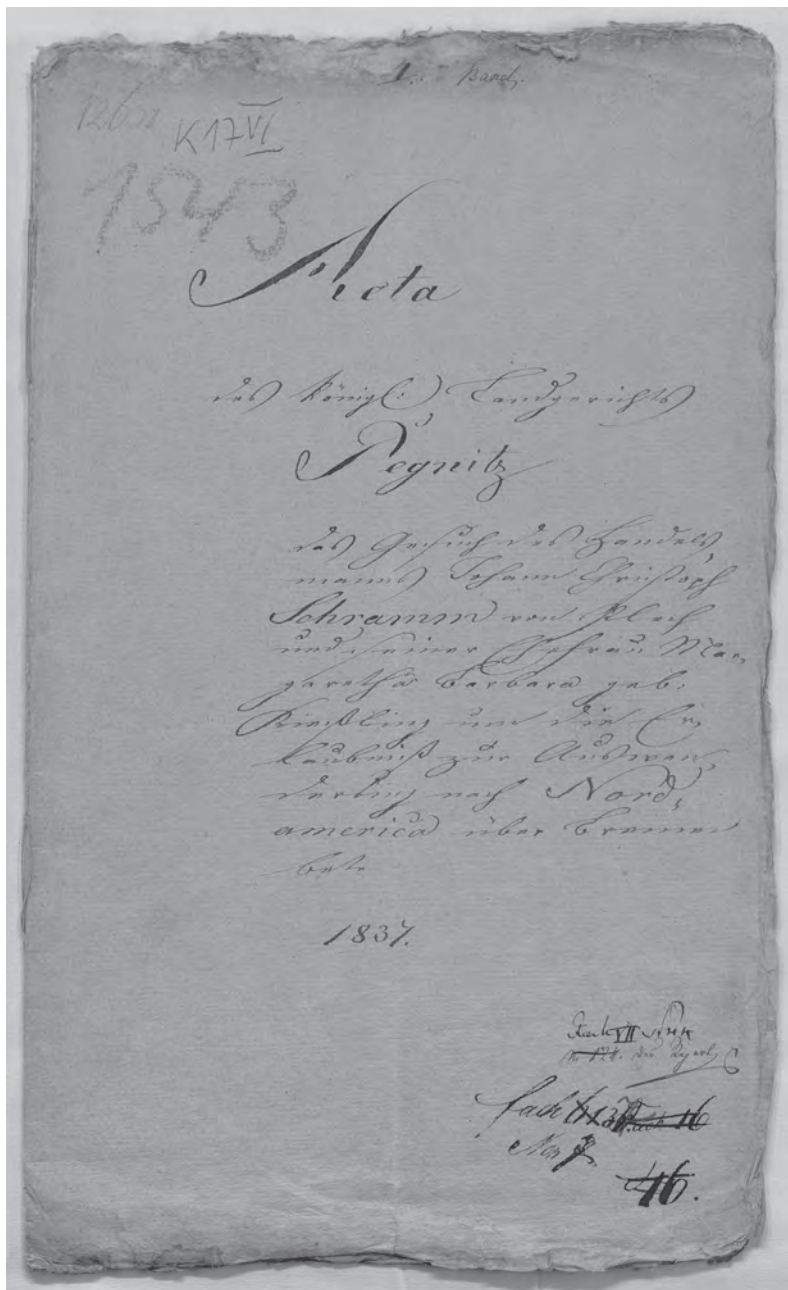 1. Band.
K17VI
1543
Acta
des Königl: Landgerichts
Pegnitz
das Gesuch des Handels,
manns Johann Christoph
Schramm von Plech
und seiner Ehefrau Mar,
garetha Barbara geb:
Kießling um die Er,
laubniß zur Auswan,
derung nach Nord,
america über Bremen
betr.
1837.
Fach
No 7.
16.